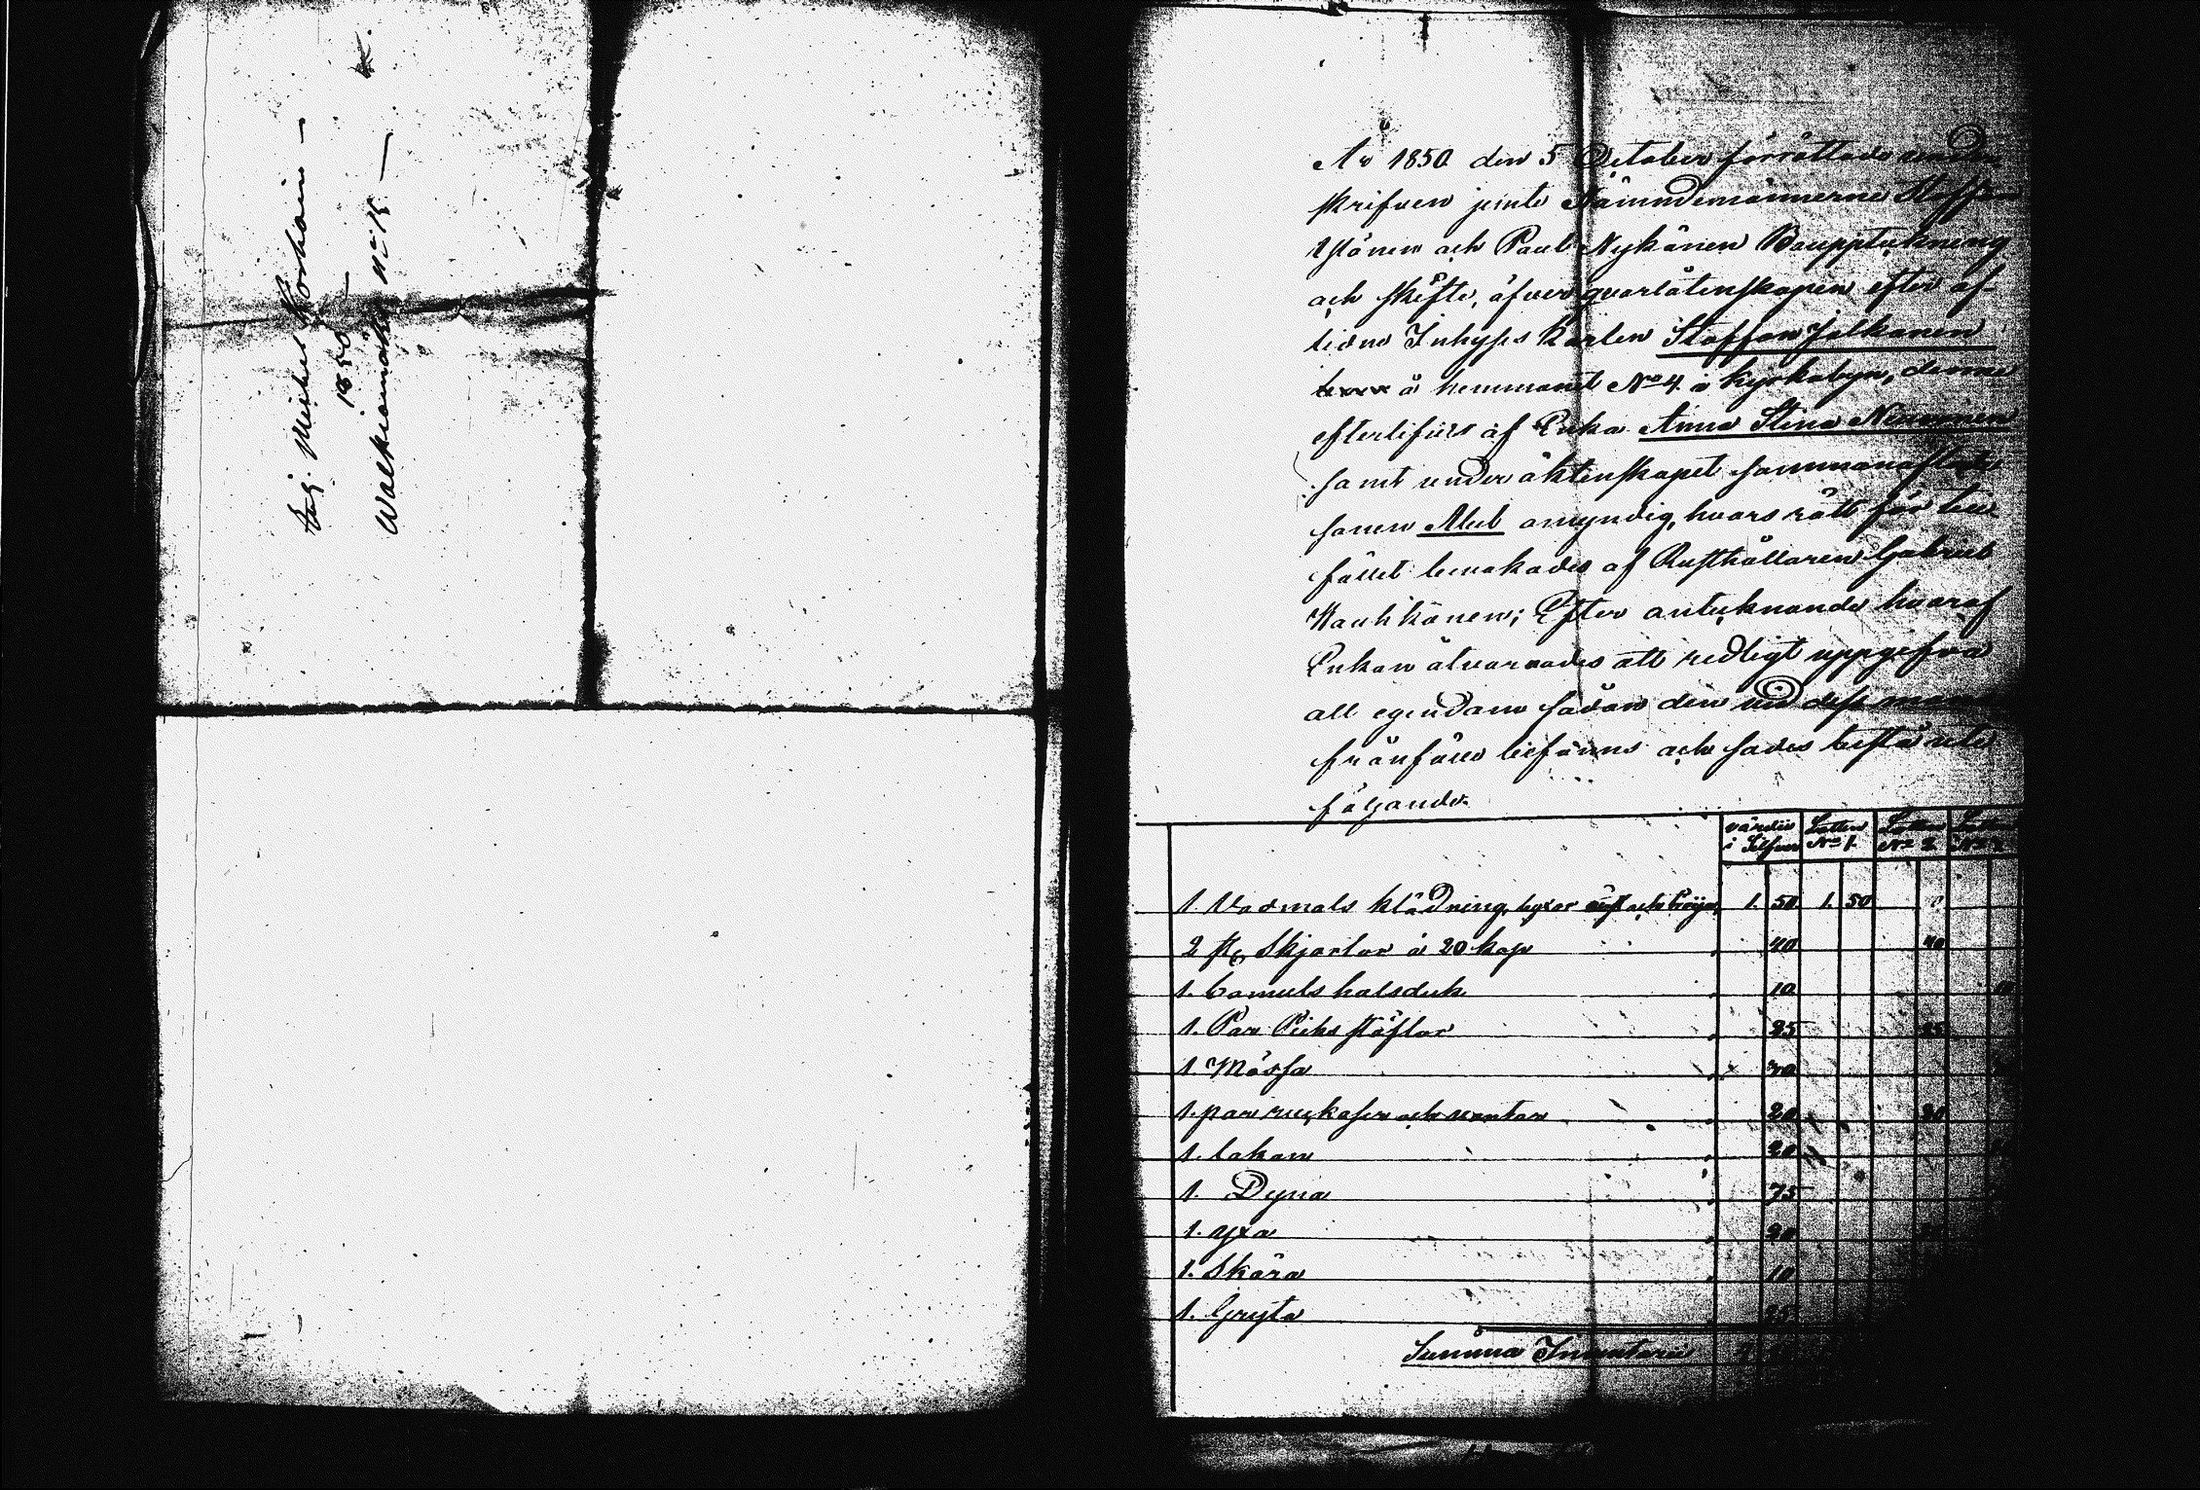 Michel Korhoin —
1850 —
Walkiamäki No 15 —
År 1850 den 5 October förrättade under
skrifven jemte Nämndemännerne Staffan
Ylönen och Paul Nykänen Bouppteckning
och skifte, öfver qvarlåtenskapen efter af-
lidne Inhyses Karlen Staffan Jalkanen
å hemmanet No 4 i Kyrkobyn, denne
efterlifves af Enka Anna Stina
samt under äktenskapet sammanaflade
sonen Abel omyndig, hvars rätt för till
fället bevakades af Rusthållaren Gabriel
Kauhkänen; Efter antecknande hvaraf
Enkan åtvarnades att redligt uppgifva
all egendom sådan den vid dess mans
frånfälle befanns och sades bestå uti
följande.
värdie i Silfver Lotten No 1. Lotten No 2 Lotten
1 Vadmals klädning, byxor väst och tröja, 1. 50 1. 50
2 st Skjortor à 20 kop 40 40
1. Camuls halsduk 10 10
1. Par Pieksstöflor 25 25
1. Mössa
1. par ruckaser och vantar 20 20
1. lakan 20
1. Dyna 75
1. yxa 20
1. Skära 10
1. Gryta 25
Summa Inventarii